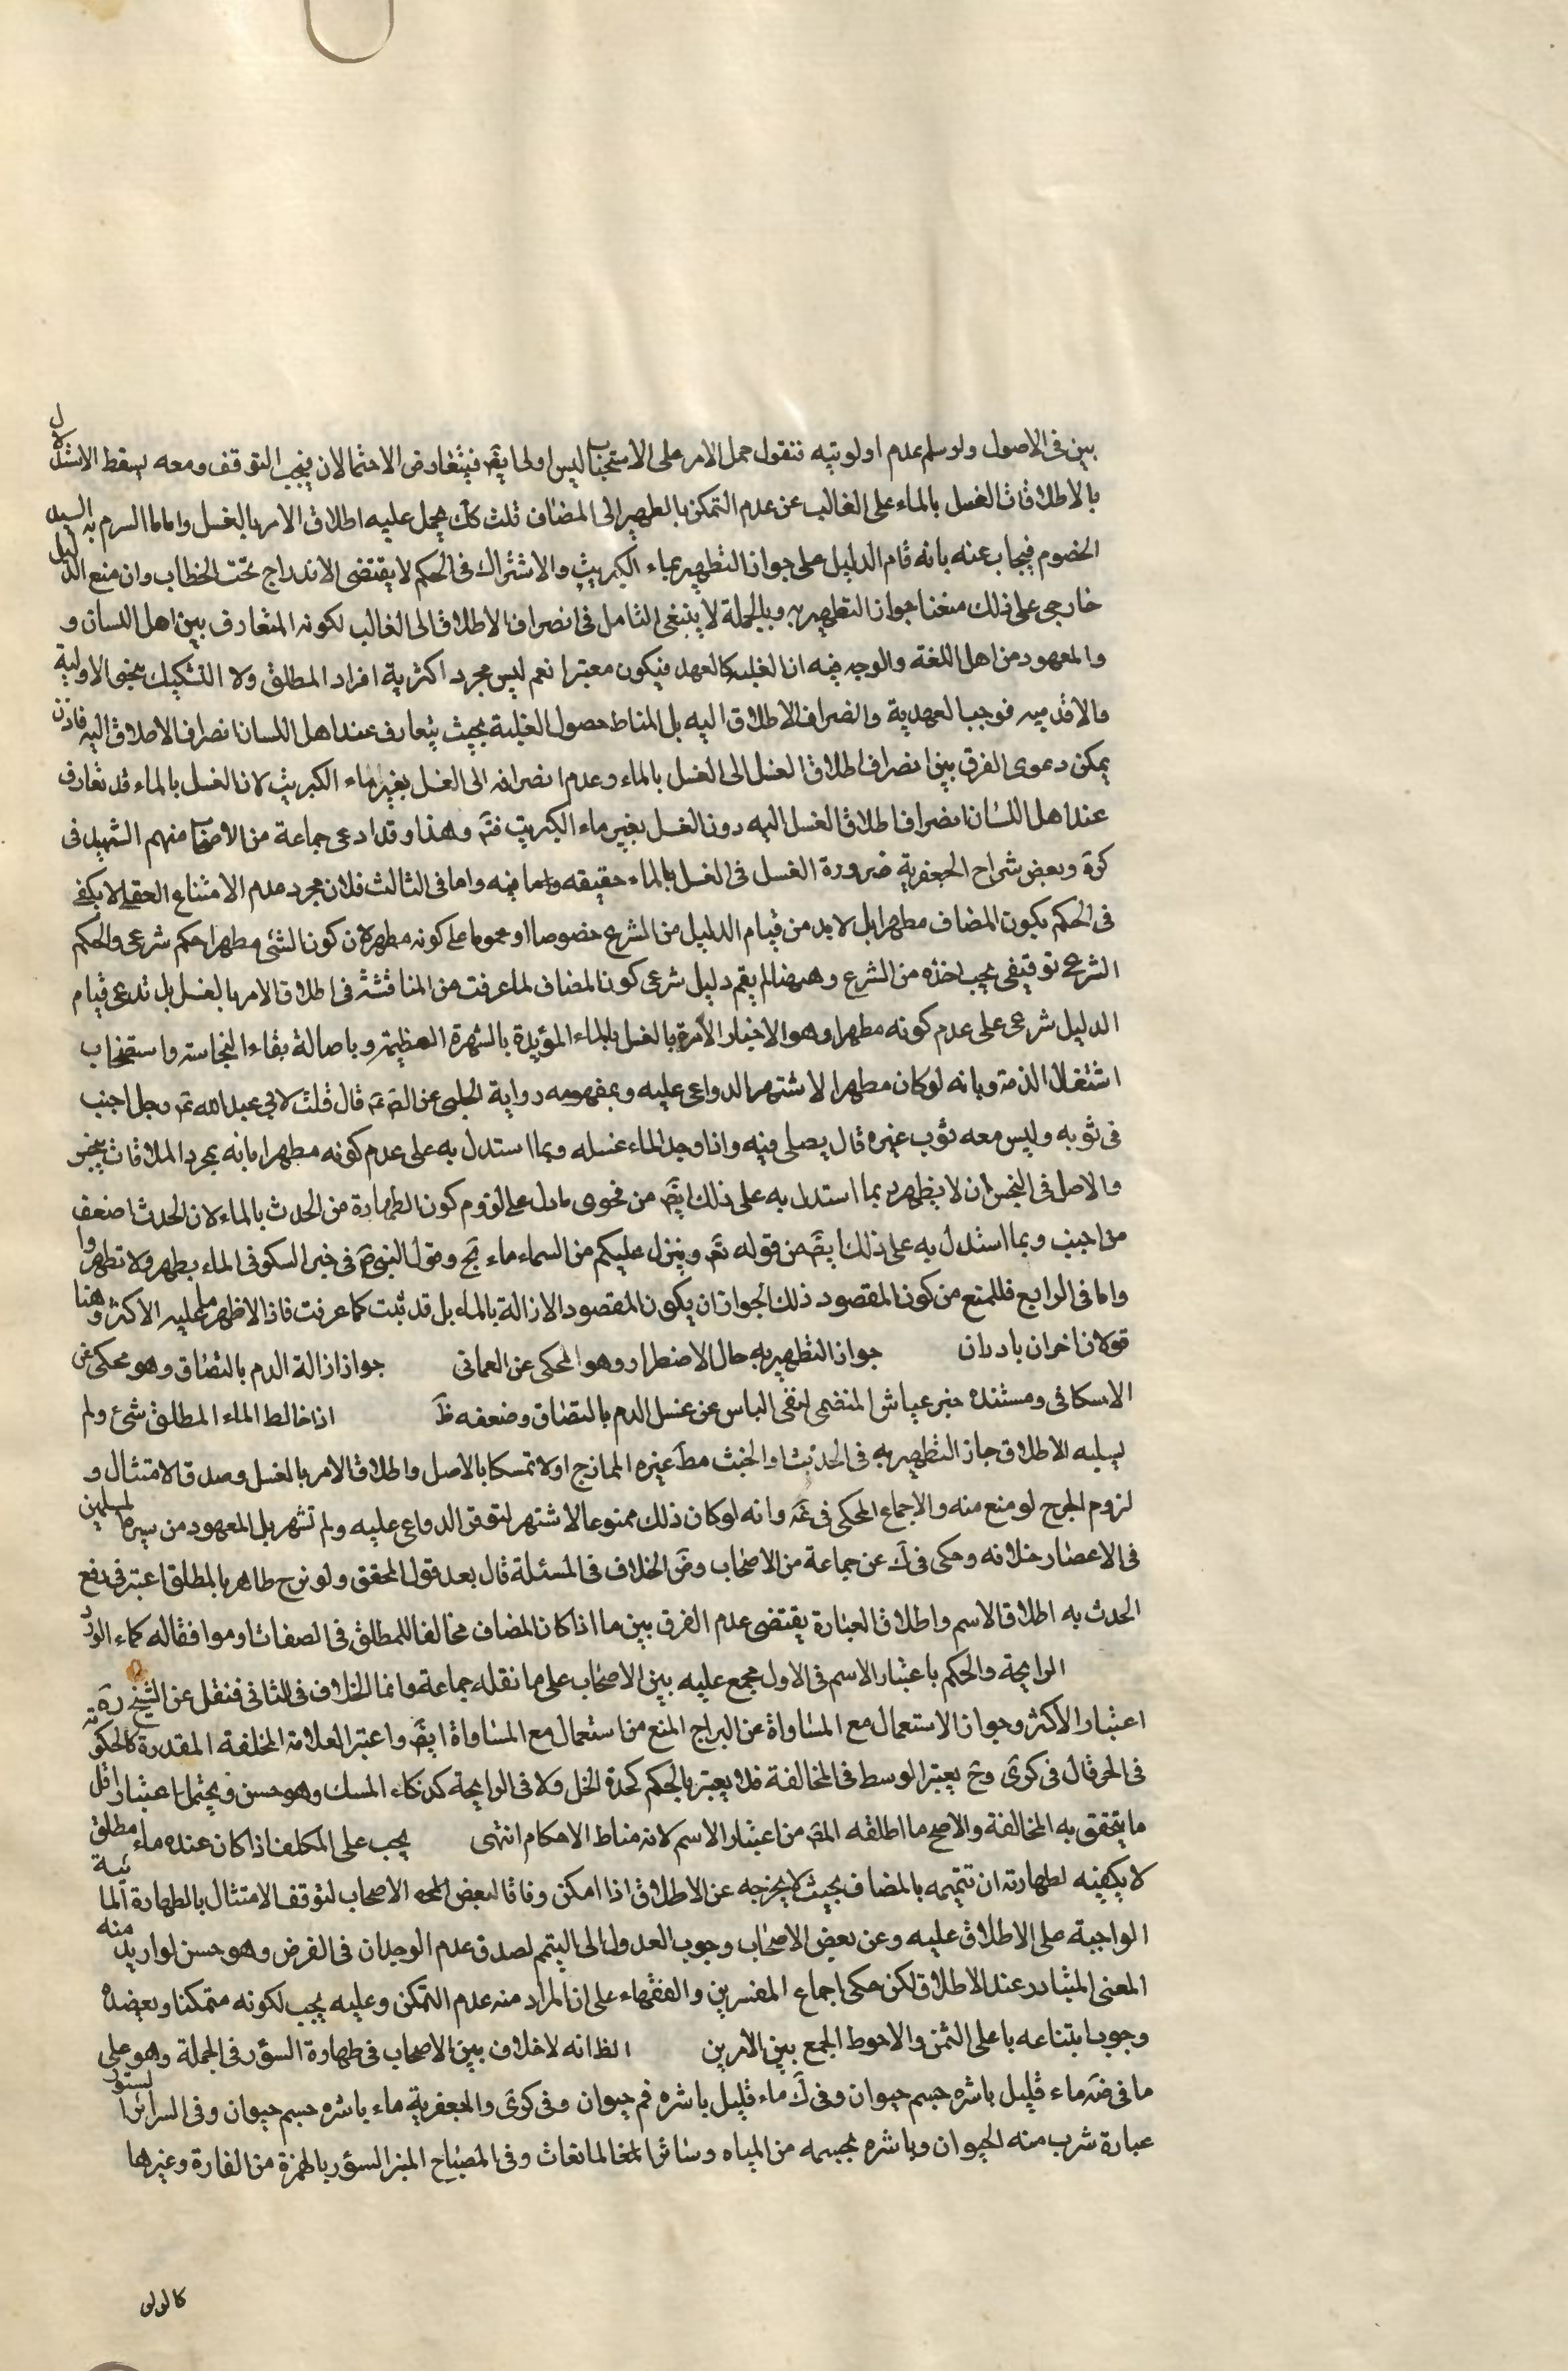 بين فى الاصول ولو سلم عدم اولويته فنقول حمل الامر على الاستحباب ليس اولى ايضَ فيتعارض الاحتمالان فيجب التوقف ومعه يسقط الاستدلال
بالاطلاقات الغسل بالماء على الغالب عن عدم التمكن بالطهير الى المضاف ثلث كك يحمل عليه اطلاق الامر بالغسل واما ما السرم به السيد
الخصوم فيجاب عنه بانه قام الدليل على جواز التطهير بماء الكبريت والاشتراك فى الحكم لا يقتضى الاندراج تحت الخطاب وان منع الدليل
خارجى على ذلك منعنا جواز التطهير به وبالجملة لا ينبغى التامل فى انصراف الاطلاق الى الغالب لكونه المتعارف بين اهل اللسان و
والمعهود من اهل اللغة والوجه فيه ان الغلبة كالعهد فيكون معتبرا نعم ليس مجرد اكثرية افراد المطلق ولا التشكيك بمعنى الاولية
والاقدميه فوجب العهدية وانصراف الاطلاق اليه بل المناط حصول الغلبة بحيث يتعارف عند اهل اللسان انصراف الاطلاق اليه فاذن
يمكن دعوى الفرق بين انصراف اطلاق الغسل الى الغسل بالماء وعدم انصرافه الى الغسل بغير ماء الكبريت لان الغسل بالماء قد تعارف
عند اهل اللسان انصراف اطلاق الغسل اليه دون الغسل بغير ماء الكبريت فتَم وهذا وقد ادعى جماعة من الاصحاب منهم الشهيد فى
كرة وبعض شراح الجعفرية ضرورة الغسل فى الغسل بالماء حقيقه واما فيه واما فى الثالث فلان مجرد عدم الامتناع العقلى لا يكفى
فى الحكم بكون المضاف مطهرا بل لا بد من قيام الدليل من الشرع خصوصا او عموما على كونه مطهرا لان كون الشئ مطهرا حكم شرعى والحكم
الشرعى توقيفى يجب اخذه من الشرع وهيهنا لم يقم دليل شرعى كون المضاف لما عرفت من المناقشة فى اطلاق الامر بالغسل بل ندعى قيام
الدليل شرعى على عدم كونه مطهرا وهو الاخبار الآمرة بالغسل بالماء المؤيدة بالشهرة العظيمة وباصالة بقاء النجاسة واستصحاب
اشتغال الذمة وبانه لو كان مطهرا لاشتهر الدواعى عليه وبمفهومه رواية الحلبى عن الصَ عَم قال قلت لابى عبد الله عَم رجل اجنب
فى ثوبه وليس معه ثوب غيره قال يصلى فيه واذا وجد الماء غسله وبما استدل به على عدم كونه مطهرا بانه بمجرد الملاقات ينجس
والاصل فى النجس ان لا يطهر وبما استدل به على ذلك ايضَ من فحوى ما دل على لزوم كون الطهارة من الحدث بالماء لان الحدث اضعف
من اجنب وبما استدل به على ذلك ايضَ من قوله تعَ وينزل عليكم من السماء ماء خ وقول النبى صَ فى خبر السكونى الماء يطهر ولا تطهر وا
واما فى الرابع فللمنع من كون المقصود ذلك لجواز ان يكون المقصود الازالة بالماء بل قد ثبت كما عرفت فاذا الاظهر ما عليه الاكثر وهنا
قولان اخران بادران جواز التطهير به حال الاضطرار وهو المحكى عن العمانى جواز ازالة الدم بالبصاق وهو محكى عن
الاسكافى ومستنده خبر غياث المتضمن لنفى الباس عن غسل الدم بالبصاق وضعفه ظَ اذا خالط الماء المطلق شئ ولم
يسلبه الاطلاق جاز التطهير به فى الحدث او الخبث مطَ غيره الممازج اولا تمسكا بالاصل واطلاق الامر بالغسل وصدق الامتثال و
لزوم الحرج لو منع منه والاجماع المحكى فى غَه وانه لو كان ذلك ممنوعا لاشتهر لتوفر الدواعى عليه ولم تشهر بل المعهود من سيرة المسلمين
فى الاعصار خلافه وحكى فى كَ عن جماعة من الاصحاب وضَ الخلاف فى المسئلة قال بعد قول المحقق ولو مزج طاهر بالمطلق اعتبر فى رفع
الحدث به اطلاق الاسم واطلاق العبارة يقتضى عدم الفرق بين ما اذا كان المضاف مخالفا للمطلق فى الصفات او موافقا له كماء الورد
الرايحة والحكم باعتبار الاسم فى الاول مجمع عليه بين الاصحاب على ما نقله جماعة وانما الخلاف فى الثانى فنقل عن الشيخ رَه
اعتبار الاكثر وجواز الاستعمال مع المساواة عن البراج المنع من استعمال مع المساواة ايضَ واعتبر العلامة المخلفة المقدرة كالحكومة
فى الحر قال فى كرى وحَ يعتبر الوسط فى المخالفة فلا يعتبر بالحكم كحدة الخل ولا فى الرايحة كذكاء المسك وهو حسن ويحتمل اعتبار اقل
ما يتحقق به المخالفة والاصح ما اطلقه المصَ من اعتبار الاسم لانه مناط الاحكام انتهى يجب على المكلف اذا كان عنده ماء مطلق
لا يكفيه لطهارته ان تتميمه بالمضاف بحيث لا يخرجه عن الاطلاق اذا امكن وفاقا لبعض الاصحاب لتوقف الامتثال بالطهارة المائية
الواجبة على الاطلاق عليه وعن بعض الاصحاب وجوب العدول الى التيمم لصدق عدم الوجدان فى الفرض وهو حسن لو اريد منه
المعنى المتبادر عند الاطلاق لكن حكى اجماع المفسرين والفقهاء على ان المراد منه عدم التمكن وعليه يجب لكونه متمكنا ويعضده
وجوب ابتناعه باعلى الثمن والاحوط الجمع بين الامرين الظَ انه لا خلاف بين الاصحاب فى طهارة السؤر فى الجملة وهو على
ما فى ضَه ماء قليل باشره جسم حيوان وفى كَ ماء قليل باشره فم حيوان وفى كرى والجعفرية ماء باشره جسم حيوان وفى السرائر السئور
عبارة شرب منه الحيوان وباشره بجسمه من المياه وسائر المائعات وفى المصباح المنير السؤر بالهمزة من الفارة وغيرها